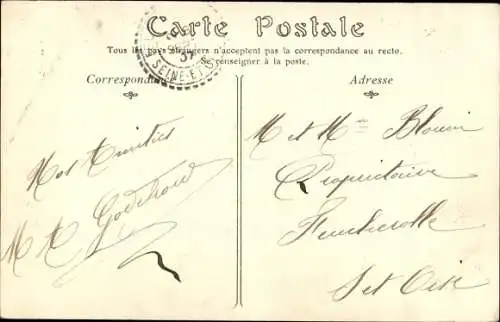 Carte Postale
Tous les pays étrangers n'acceptent pas la correspondance au recto.
Se renseigner à la poste.
Correspondance
Adresse
SEINE-ET-O
Nos Amitiés
M et Mme Blouin
Propriétaire
Feucherolle
S et Oise